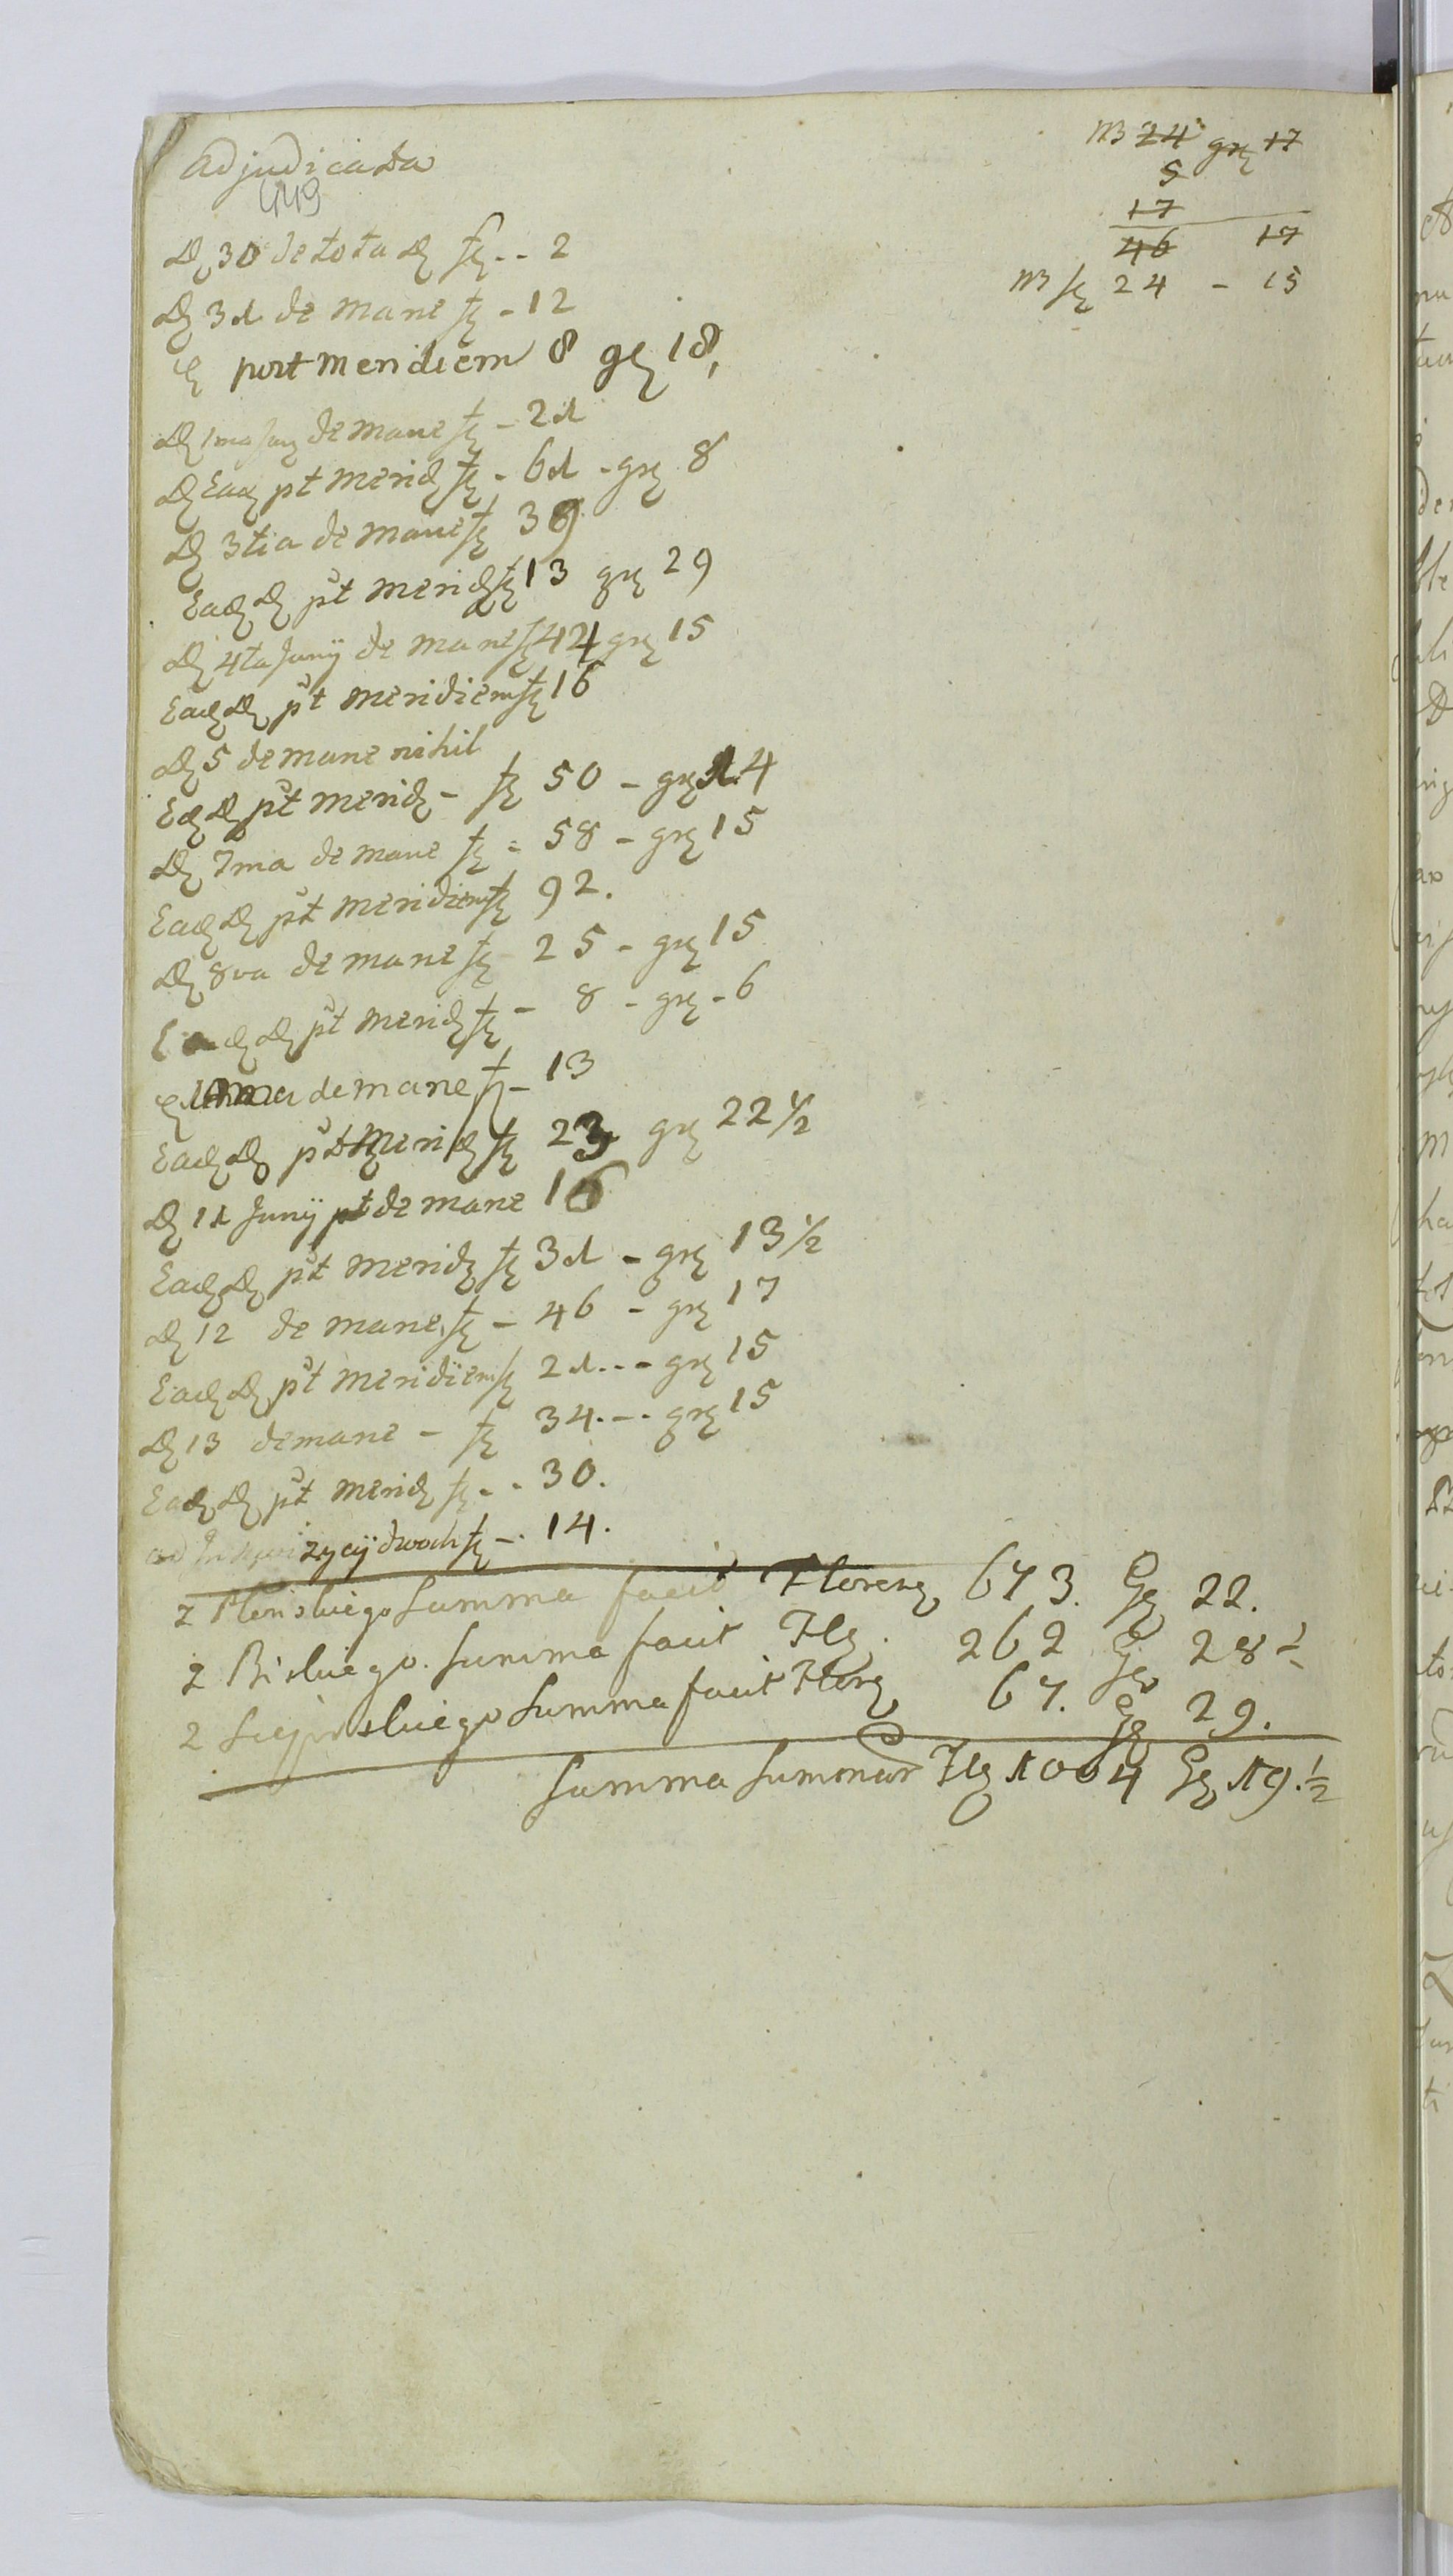 Adjudicata
449
D 30 de tota D f - - 2
D 31 de mane f - 12
post meridiem 8 gr 18,
D 1ma Juny de mane f - 21
D Ead pt merid f - 61 - gr 8
D 3tia de mane f 39
Ead D pt merid f 13 gr 29
D 4ta Juny de mane f 42 gr 15
Ead D pt meridiem f 16
D 5 de mane nihil
Ead D pt merid - f 50 - gr 14
D 7ma de mane f - 58 - gr 15
Ead D pt meridiem f 92.
D 8va de mane f 25 - gr 15
Ead D pt merid f - 8 - gr - 6
10ma de mane f - 13
Ead D pt merid f 23 gr 22 1/2
D 11 Juny de mane 16
Ead D pt merid f 31 - gr 13 1/2
D 12 de mane f - 46 - gr 17
Ead D pt meridiem f 21 - - - gr 15
D 13 de mane - f 34. - . gr 15
Ead D pt merid f - - 30.
dwoch f - . 14.
Summa facit Floren 673. G 22.
Summa facit Fl. 262 G 28 1/2
Summa facit Flor 67. G 29.
Summa Summar Fl 1004 G 19. 1/2
m 24 gr 17
5
17
46 17
m f 24 - 15